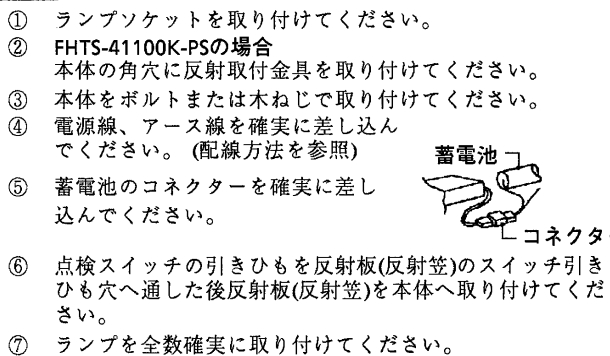 ① ランプソケットを取り付けてください。
② FHTS-41100K-PSの場合
本体の角穴に反射取付金具を取り付けてください。
③ 本体をボルトまたは木ねじで取り付けてください。
④ 電源線、アース線を確実に差し込ん
でください。 (配線方法を参照)
蓄電池
⑤ 蓄電池のコネクターを確実に差し
込んでください。
コネクター
⑥ 点検スイッチの引きひもを反射板(反射笠)のスイッチ引き
ひも穴へ通した後反射板(反射笠)を本体へ取り付けてくだ
さい。
⑦ ランプを全数確実に取り付けてください。